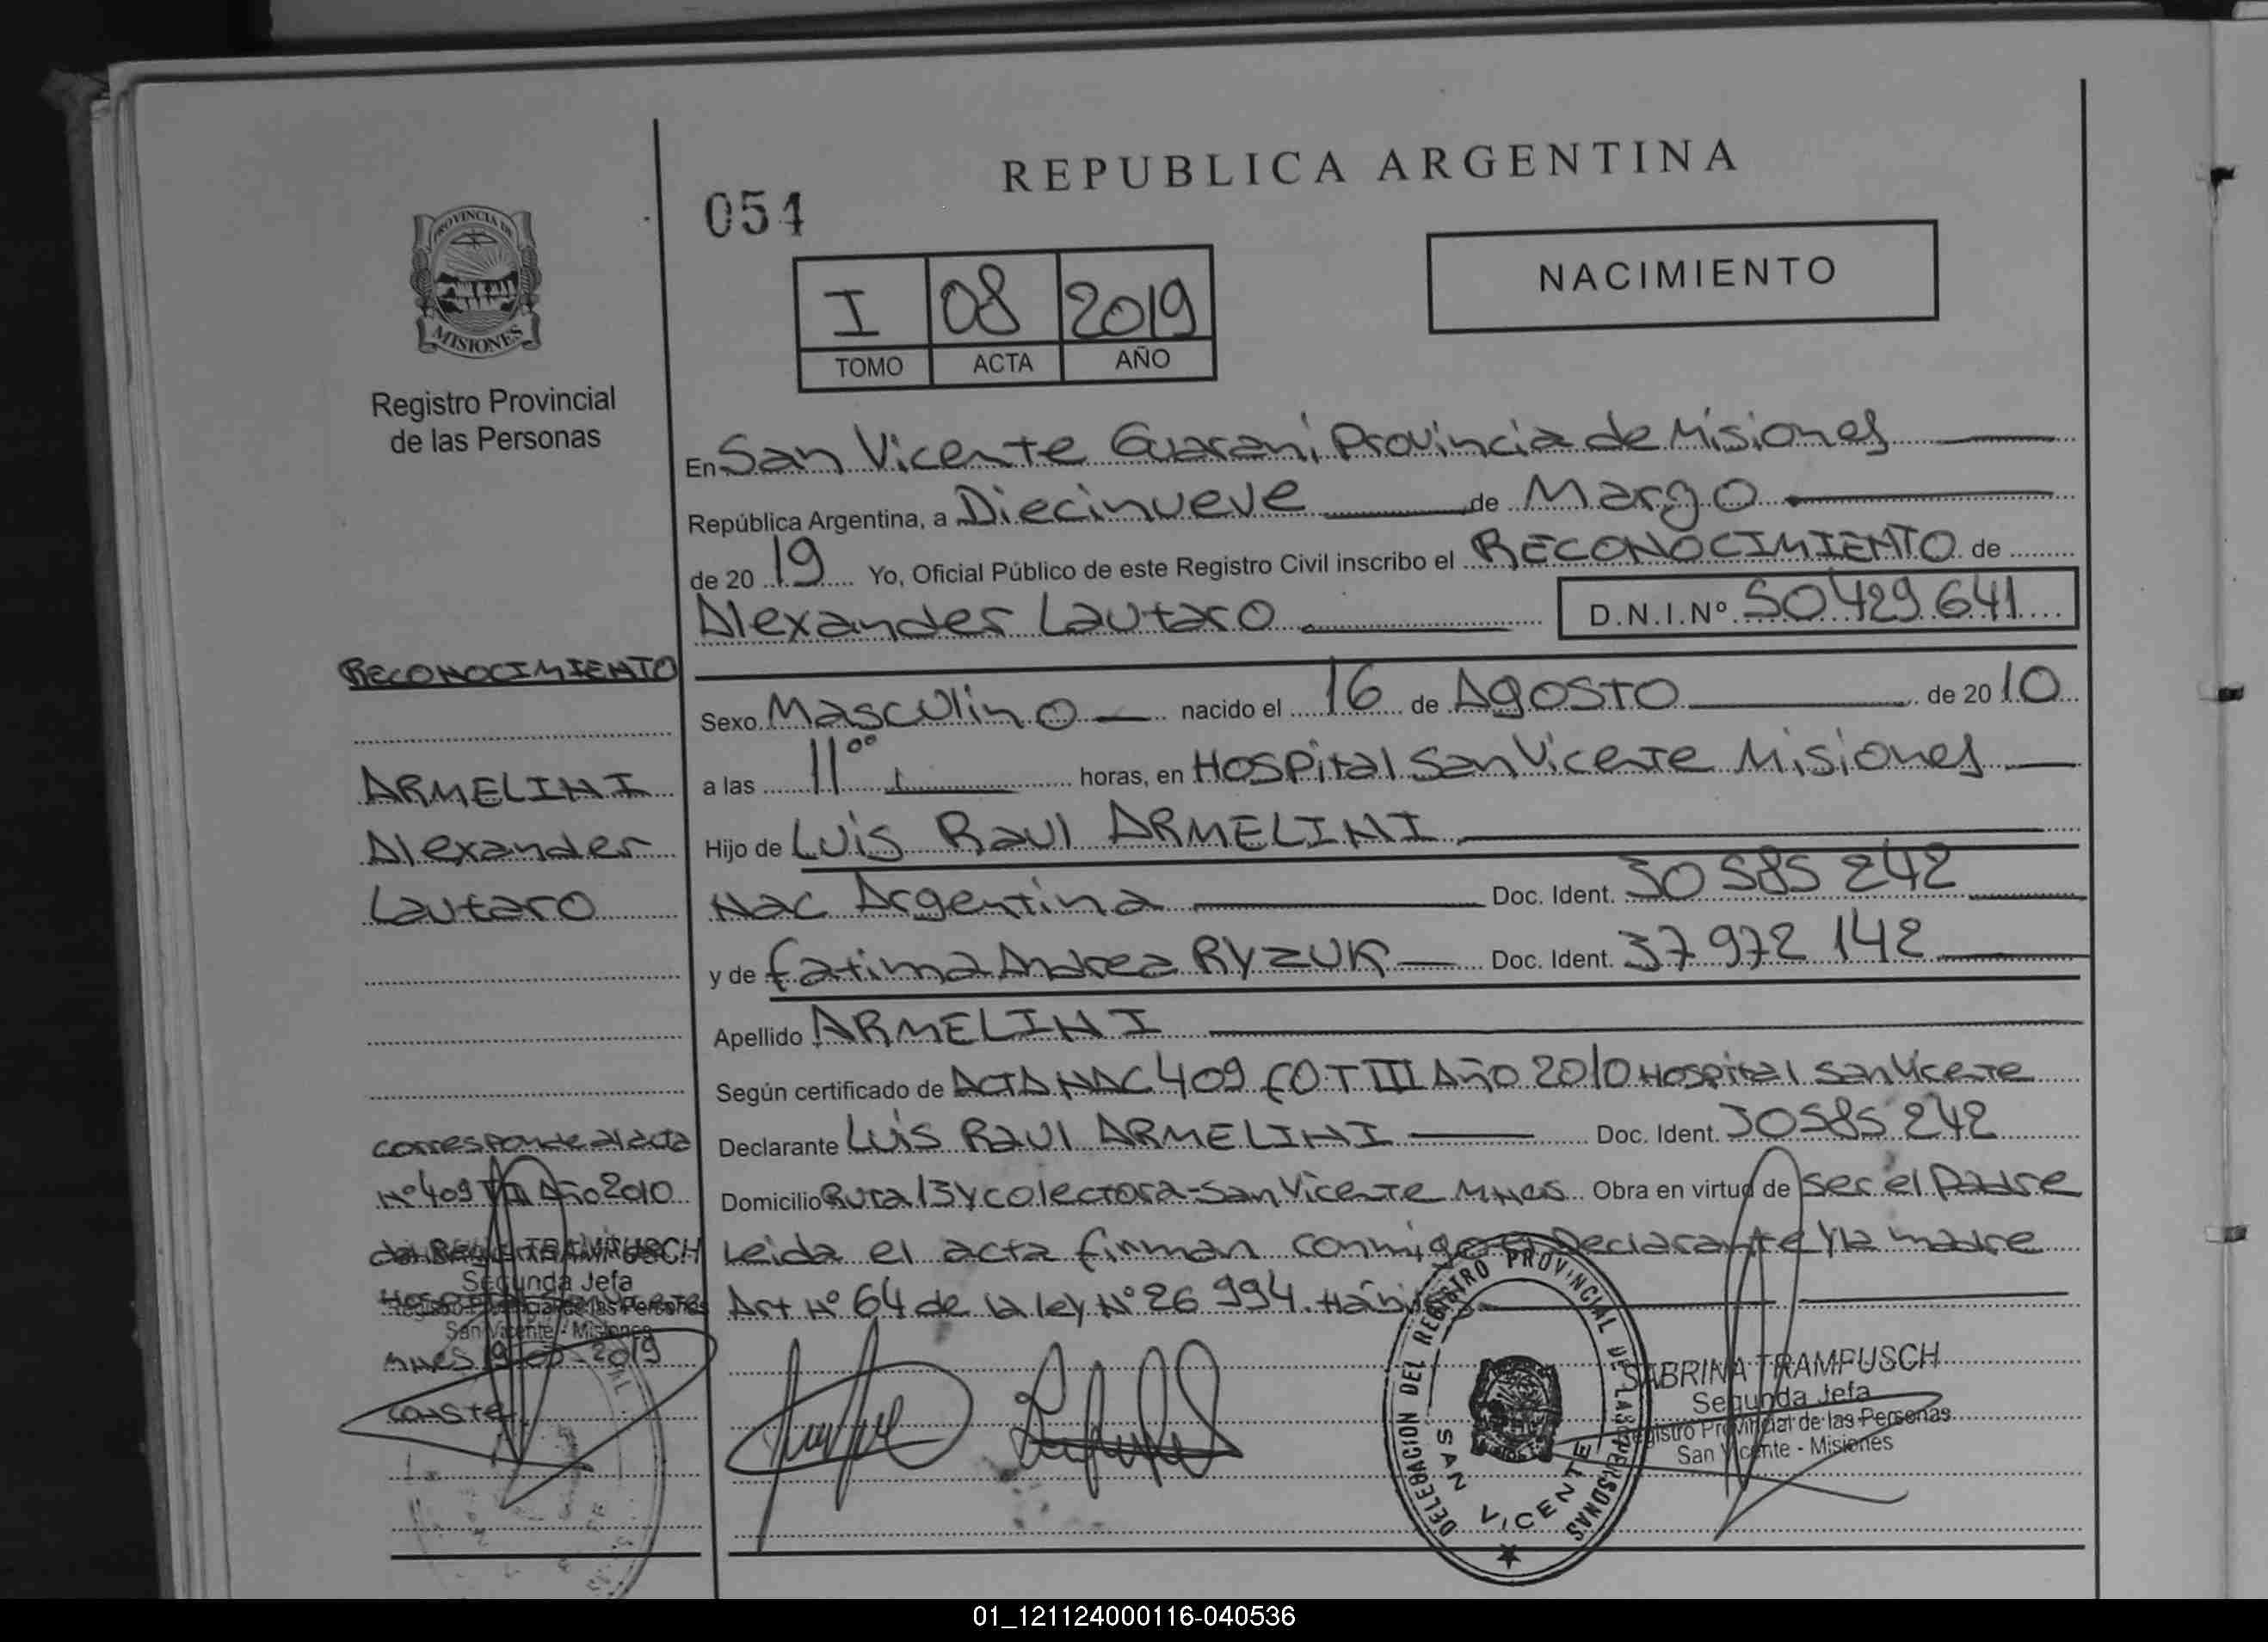 REPUBLICA ARGENTINA
054
NACIMIENTO
I 08 2019
TOMO ACTA AÑO
PROVINCIA DE
MISIONES
Registro Provincial
de las Personas
En San Vicente Guarani Provincia de Misiones
República Argentina, a Diecinueve de Marzo
de 20 19 Yo, Oficial Público de este Registro Civil inscribo el RECONOCIMIENTO de
Alexander Lautaro D.N.I.Nº 50429641
Sexo Masculino nacido el 16 de Agosto de 20 10
a las 11ºº horas, en Hospital San Vicente Misiones
Hijo de Luis Raul ARMELINI
Nac Argentina Doc. Ident. 30585242
y de Fatima Andrea RYZUK Doc. Ident. 37972142
Apellido ARMELINI
Según certificado de ACTA NAC 409 Tº III Año 2010 Hospital San Vicente
Declarante Luis Raul ARMELINI Doc. Ident. 30585242
Domicilio Ruta 13 y colectora - San Vicente Mnes Obra en virtud de ser el Padre
Leida el acta firman conmigo el Declarante y la madre
Art Nº 64 de la ley Nº 26 994.
RECONOCIMIENTO
ARMELINI
Alexander
Lautaro
corresponde al acta
Nº 409 TIII Año 2010
TRAMPUSCH
Segunda Jefa
Registro Provincial de las Personas
San Vicente - Misiones
Mnes 19-03-2019
conste
DELEGACION DEL REGISTRO PROVINCIAL DE LAS PERSONAS
SAN VICENTE
SABRINA TRAMPUSCH
Segunda Jefa
Registro Provincial de las Personas
San Vicente - Misiones
01_121124000116-040536